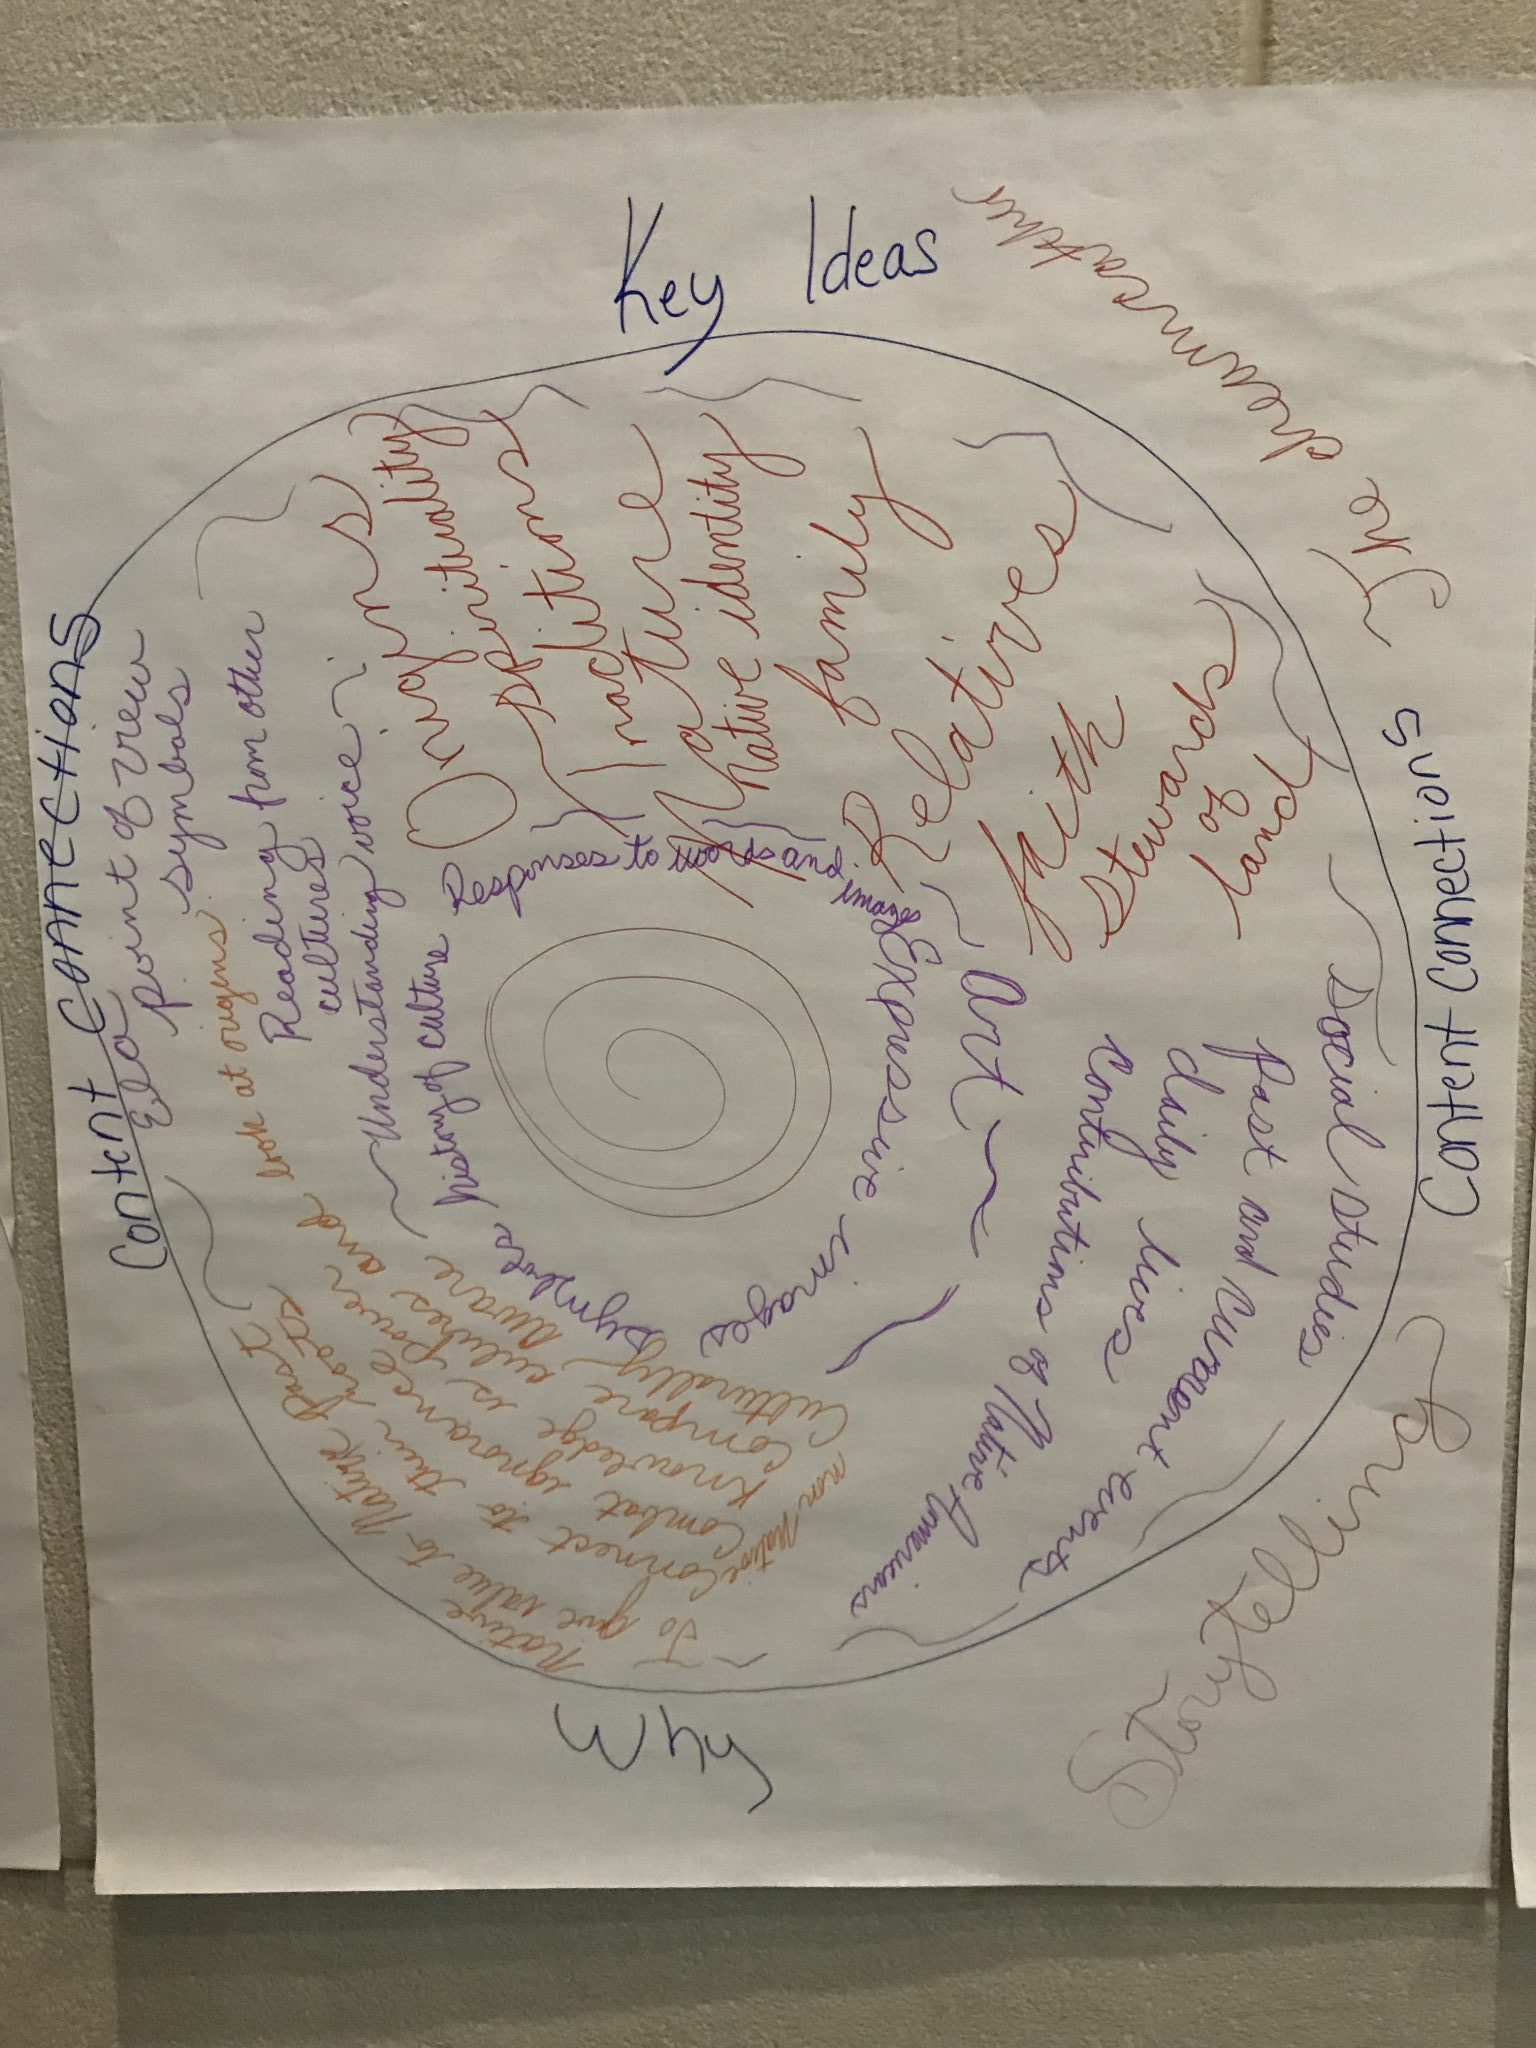 Key Ideas
The dreamcatcher
Origins
spirituality
traditions
nature
native identity
family
Relatives
faith
Stewards
of
land
Content Connections
Social Studies
Past and Current events
daily lives
contributions of Native Americans
Art
Expressive images
Responses to words and images
symbols
history of culture
Storytelling
Why
Culturally Aware
Compare cultures
Knowledge is Power and
Combat ignorance
Connect to their roots
To give value to Native Past
native
non Native
look at origens
Content Connections
ELA
point of view
symbols
Reading from other
cultures
Understanding voice